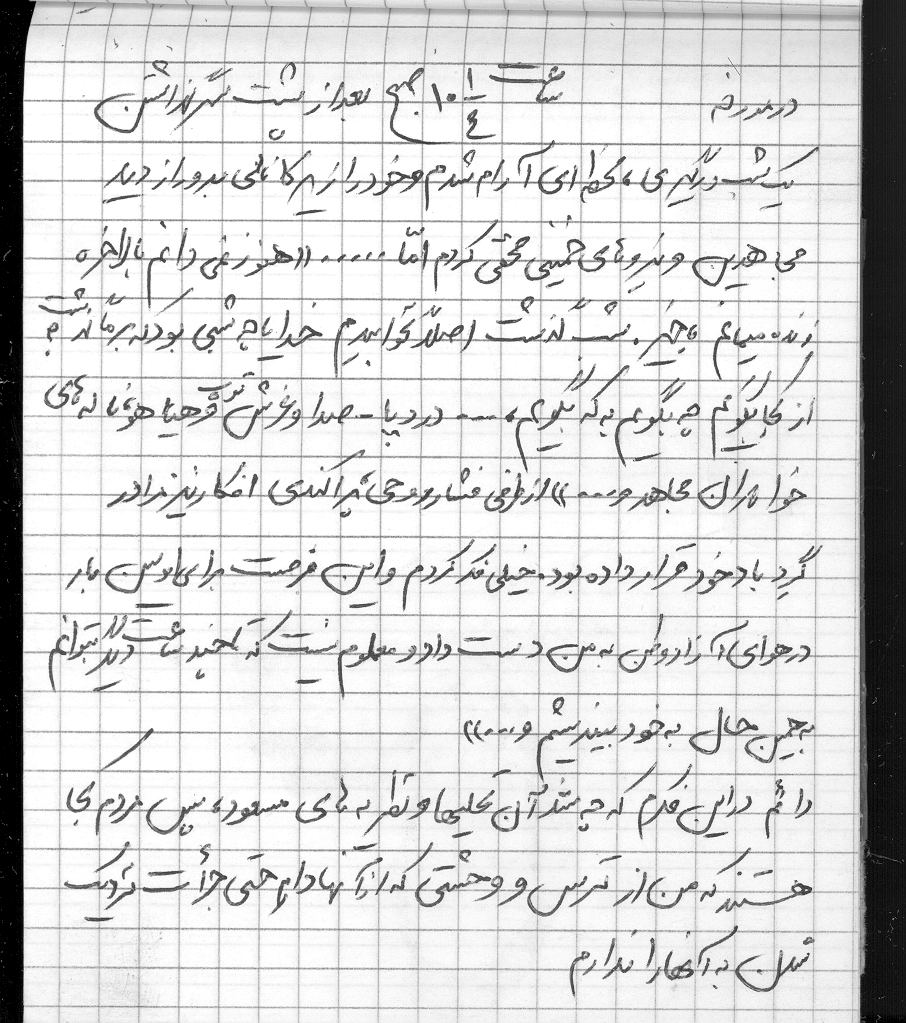 ساعت ۱۰ ۱/۴ صبح بعد از پشت سر گذاشتن
یک شب درگیری، لحظه ای آرام شدم و خود را زیر کانالی بدور از دید
مجاهدین و نیروهای خمینی مخفی کردم امّا ..... ((هنوز نمی دانم بالاخره
زنده میمانم یا خیر. شب گذشت اصلاً نخوابیدم خدایا چه شبی بود که بر ما گذشت؟
از کجا بگویم چه بگویم به که بگویم، .... درد پا - صدا و غرش هیاهو، ناله های
خواهران مجاهد و....)) از طرفی فشار روحی، پراکندگی افکار نیز مرا در
گِرد باد خود قرار داده بود. خیلی فکر کردم و این فرصت برای اولین بار
در هوای آزاد وطن به من دست داد و معلوم نیست که تا چند ساعت دیگر بتوانم
به همین حال به خود بیندیشم و....))
دائم در این فکرم که چه شد آن تحلیلها و نظریه های مسعود، پس مردم کجا
هستند که من از ترس و وحشتی که از آنها دارم حتی جرأت نزدیک
شدن به آنها را ندارم